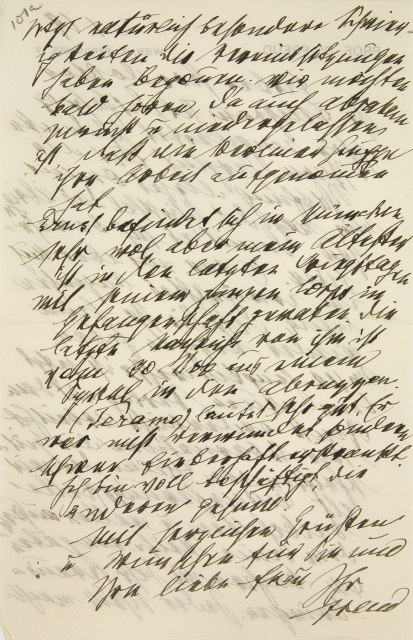 101a
jetzt natürlich besondere Schwier-
igkeiten die
haben begonnen. Wir möchten
bald hören, da auch Abraham
u niederlassen
ist, daß die Berliner Gruppe
ihre Arbeit aufgenommen
hat
Ernst befindet sich in München
sehr wohl aber mein Ältester
ist in den letzten Kriegstagen
mit seinem ganzen Corps in
Gefangenschaft geraten die
letzte Nachricht von ihm ist
vom Nov aus einem
Spital in den Abruzzen.
(Teramo) lautet sehr gut. Er
war nicht verwundet sondern
schwer fieberhaft erkrankt.
Ich bin voll beschäftigt, die
anderen gesund
Mit herzlichen Grüßen
u Wünschen für Sie und
Ihre liebe Frau Ihr
Freud